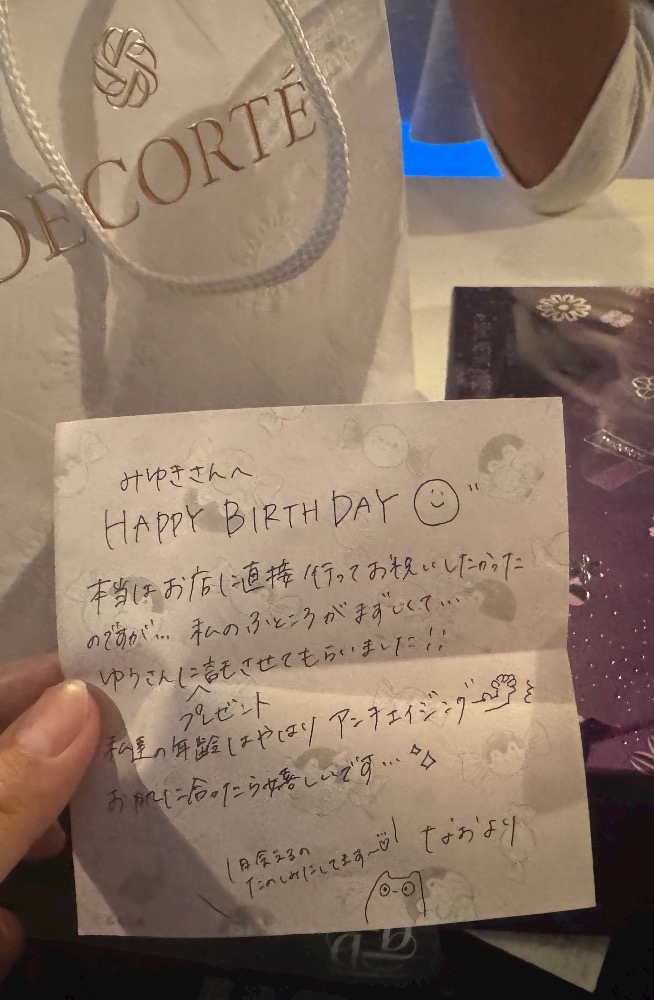 DECORTÉ
みゆきさんへ
HAPPY BIRTHDAY
本当はお店に直接行ってお祝いしたかった
のですが… 私のふところがまずしくて…
ゆうさんに託させてもらいました!!
プレゼント
私達の年齢はやはりアンチエイジング
お肌に合ったら嬉しいです…
なおより
会えるの
たのしみにしてます〜